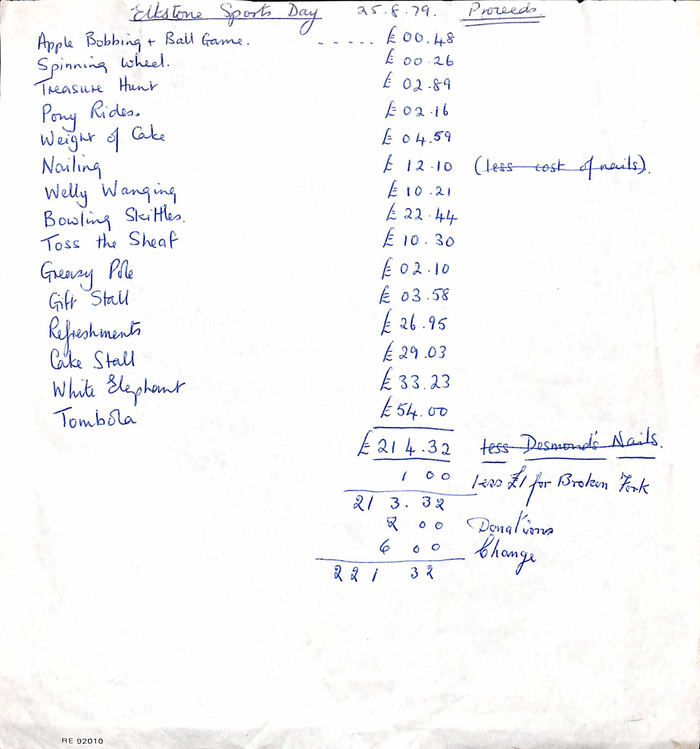 Elkstone Sports Day 25.8.79. Proceeds.
Apple Bobbing + Ball Game. ----- £00.48
Spinning Wheel. £00.26
Treasure Hunt £02.89
Pony Rides. £02.16
Weight of Cake £04.59
Nailing £12.10 (less cost of nails).
Welly Wanging £10.21
Bowling Skittles. £22.44
Toss the Sheaf £10.30
Greasy Pole £02.10
Gift Stall £03.58
Refreshments £26.95
Cake Stall £29.03
White Elephant £33.23
Tombola £54.00
£214.32 less Desmond's Nails.
1 00 less £1 for Broken Fork
213.32
2 00 Donations
6 00 Change
221 32
RE 92010